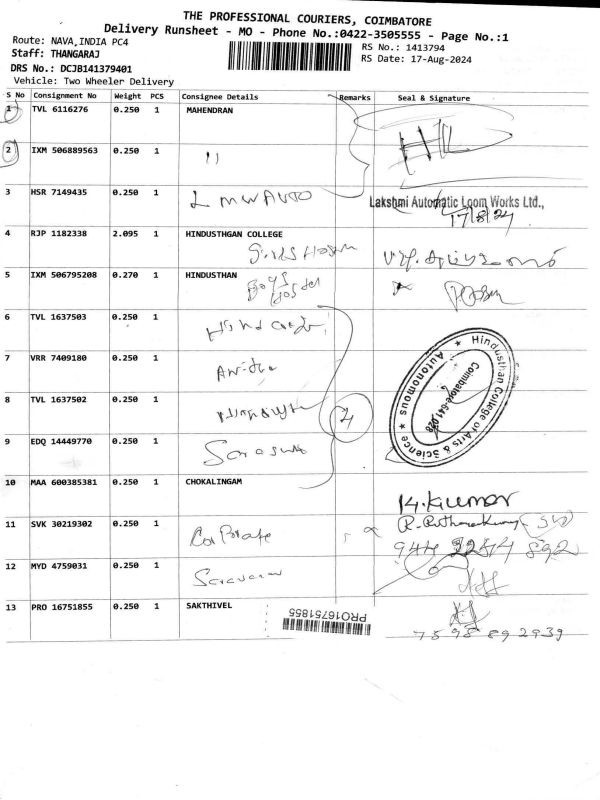 THE PROFESSIONAL COURIERS, COIMBATORE
Delivery Runsheet - MO - Phone No.:0422-3505555 - Page No.:1
Route: NAVA,INDIA PC4
RS No.: 1413794
Staff: THANGARAJ
RS Date: 17-Aug-2024
DRS No.: DCJB141379401
Vehicle: Two Wheeler Delivery
S No Consignment No Weight PCS Consignee Details Remarks Seal & Signature
1 TVL 6116276 0.250 1 MAHENDRAN
2 IXM 506889563 0.250 1 11
3 HSR 7149435 0.250 1 LMWAUTO
Lakshmi Automatic Loom Works Ltd.,
17/8/24
4 RJP 1182338 2.095 1 HINDUSTHGAN COLLEGE
5 IXM 506795208 0.270 1 HINDUSTHAN
Boys
Hostel
6 TVL 1637503 0.250 1
7 VRR 7409180 0.250 1
8 TVL 1637502 0.250 1
9 EDQ 14449770 0.250 1
Hindusthan College of Arts & Science ★ Autonomous ★
Coimbatore-641 028
10 MAA 600385381 0.250 1 CHOKALINGAM
K.Kumar
11 SVK 30219302 0.250 1 Corporate
12 MYD 4759031 0.250 1 Saravanan
13 PRO 16751855 0.250 1 SAKTHIVEL
PRO16751855
7598892939